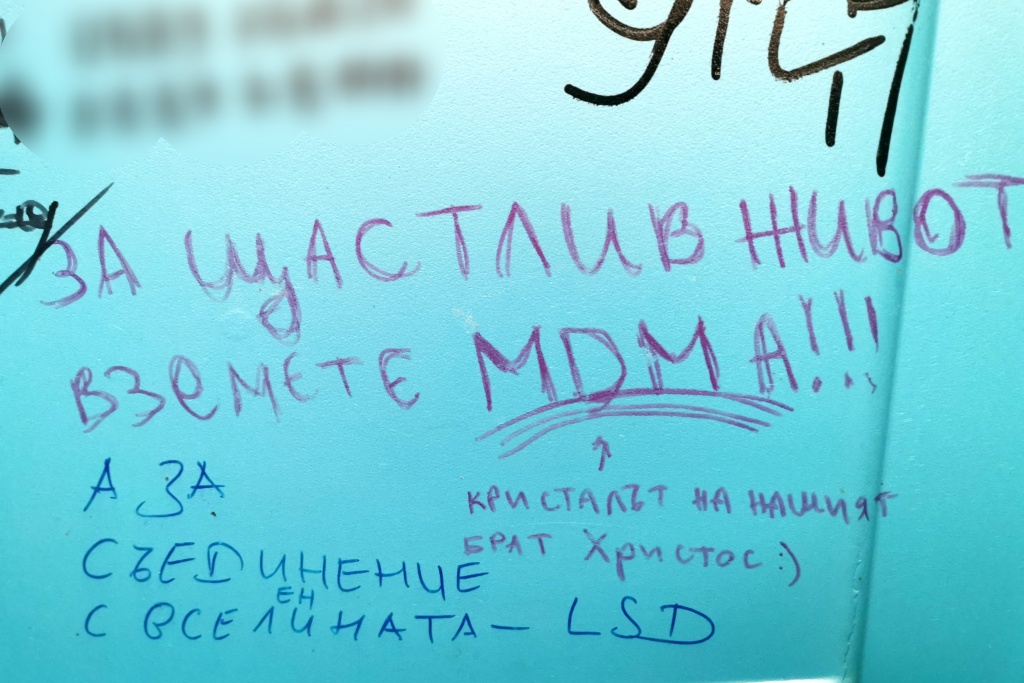 ЗА ЩАСТЛИВ ЖИВОТ
ВЗЕМЕТЕ MDMA!!!
↑
КРИСТАЛЪТ НА НАШИЯТ
БРАТ Христос :)
А ЗА
СЪЕДИНЕНИЕ
С ВСЕЛЕНАТА – LSD